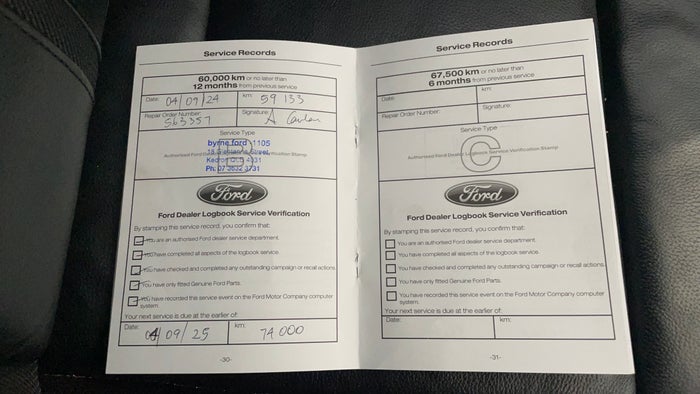 Service Records
60,000 km or no later than
12 months from previous service
Date: 04/09/24 km: 59 133
Repair Order Number: 563357 Signature:
Service Type
byrne ford 1105
Authorised Ford Verification Stamp
Kedron QLD 4031
Ph. 07 3632 3731
Ford
Ford Dealer Logbook Service Verification
By stamping this service record, you confirm that:
You are an authorised Ford dealer service department.
You have completed all aspects of the logbook service.
You have checked and completed any outstanding campaign or recall actions.
You have only fitted Genuine Ford Parts.
You have recorded this service event on the Ford Motor Company computer
system.
Your next service is due at the earlier of:
Date: 04/09/25 km: 74 000
-30-
Service Records
67,500 km or no later than
6 months from previous service
Date: km:
Repair Order Number: Signature:
Service Type
C
Authorised Ford Dealer Logbook Service Verification Stamp
Ford
Ford Dealer Logbook Service Verification
By stamping this service record, you confirm that:
You are an authorised Ford dealer service department.
You have completed all aspects of the logbook service.
You have checked and completed any outstanding campaign or recall actions.
You have only fitted Genuine Ford Parts.
You have recorded this service event on the Ford Motor Company computer
system.
Your next service is due at the earlier of:
Date: km:
-31-